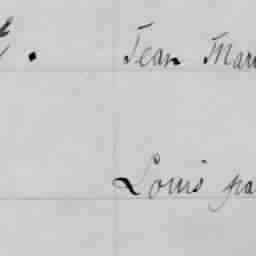 Jean Mar
Louis pa